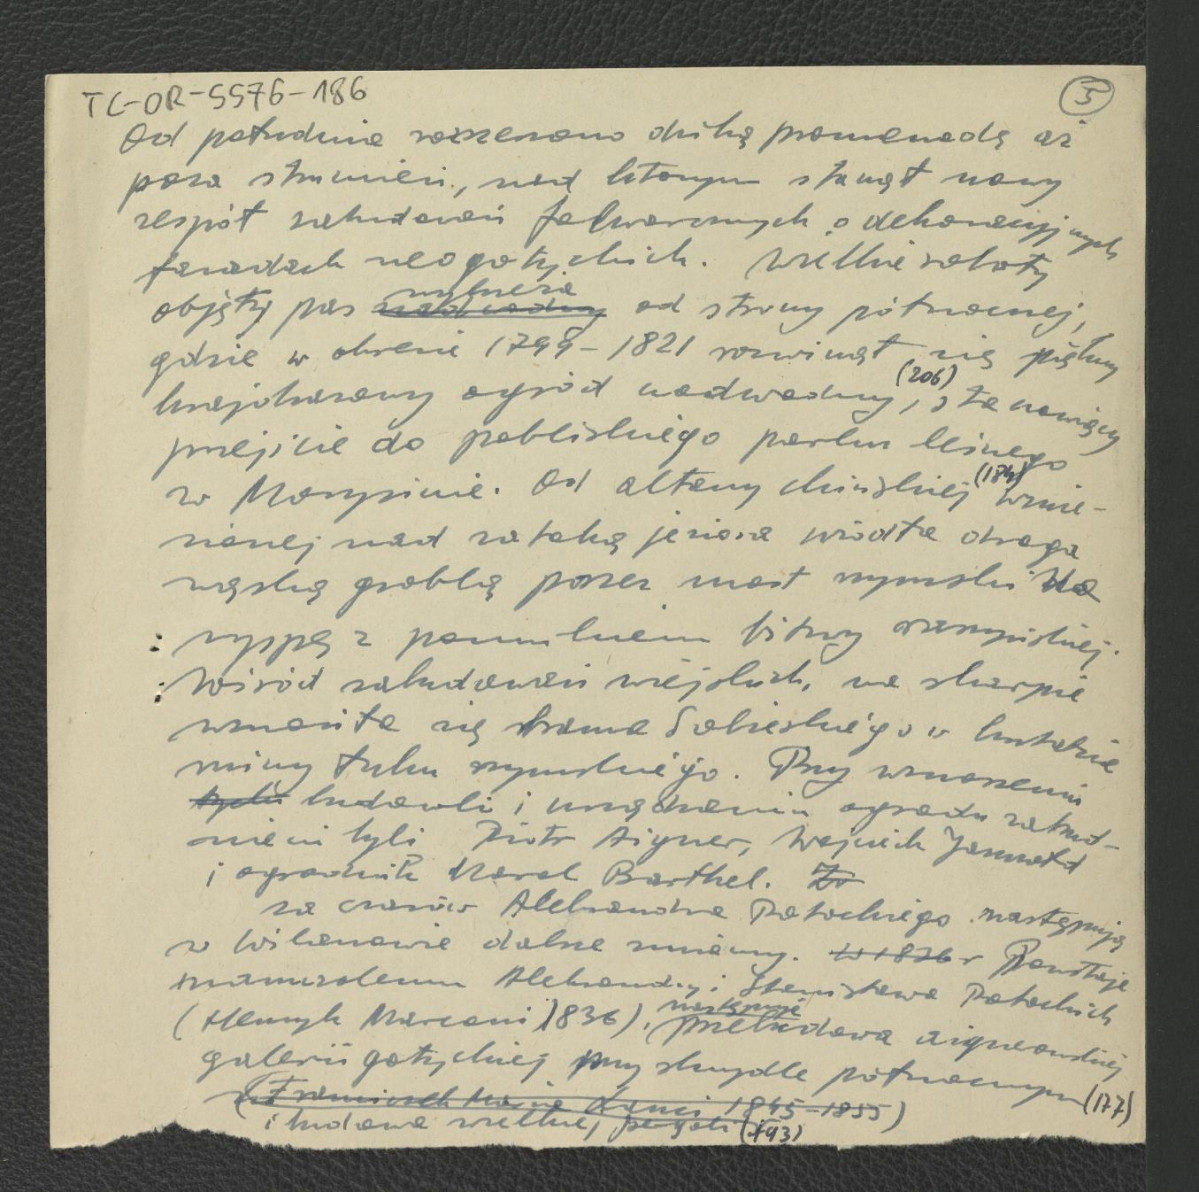 TC-OR-5576-186
5
Od południa rozszerzono dzikę promenadę aż
poza strumień, nad którym stanął nowy
zespół zabudowań folwarcznych o dekoracyjnych
fasadach neogotyckich. Wielkie roboty
wybrzeża
objęły pas nadwodny od strony północnej,
gdzie w okresie 1799-1821 rozwinął się piękny
(206)
krajobrazowy ogród nadwodny, stanowiący
przejście do pobliskiego parku leśnego
w Morysinie. Od altany chińskiej (184) wznie-
sionej nad zatoką jeziora wiodła droga
wąską groblą przez most rzymski na
wyspę z pomnikiem bitwy raszyńskiej.
Wśród zabudowań wiejskich, na skarpie
wznosiła się brama Sobieskiego w kształcie
ruiny łuku rzymskiego. Przy wznoszeniu
tych budowli i urządzaniu ogrodu zatrud-
nieni byli Piotr Aigner, Wojciech Jaszczołd
i ogrodnik Karol Barthel. Za
za czasów Aleksandra Potockiego następują
w Wilanowie dalsze zmiany. W 1826 r Powstaje
mauzoleum Aleksandry i Stanisława Potockich
następuje
(Henryk Marconi 1836), przebudowa aignerowskiej
galerii gotyckiej przy skrzydle północnym (177)
(Franciszek Maria Lanci 1845-1855)
i budowa wielkiej pergoli (193)